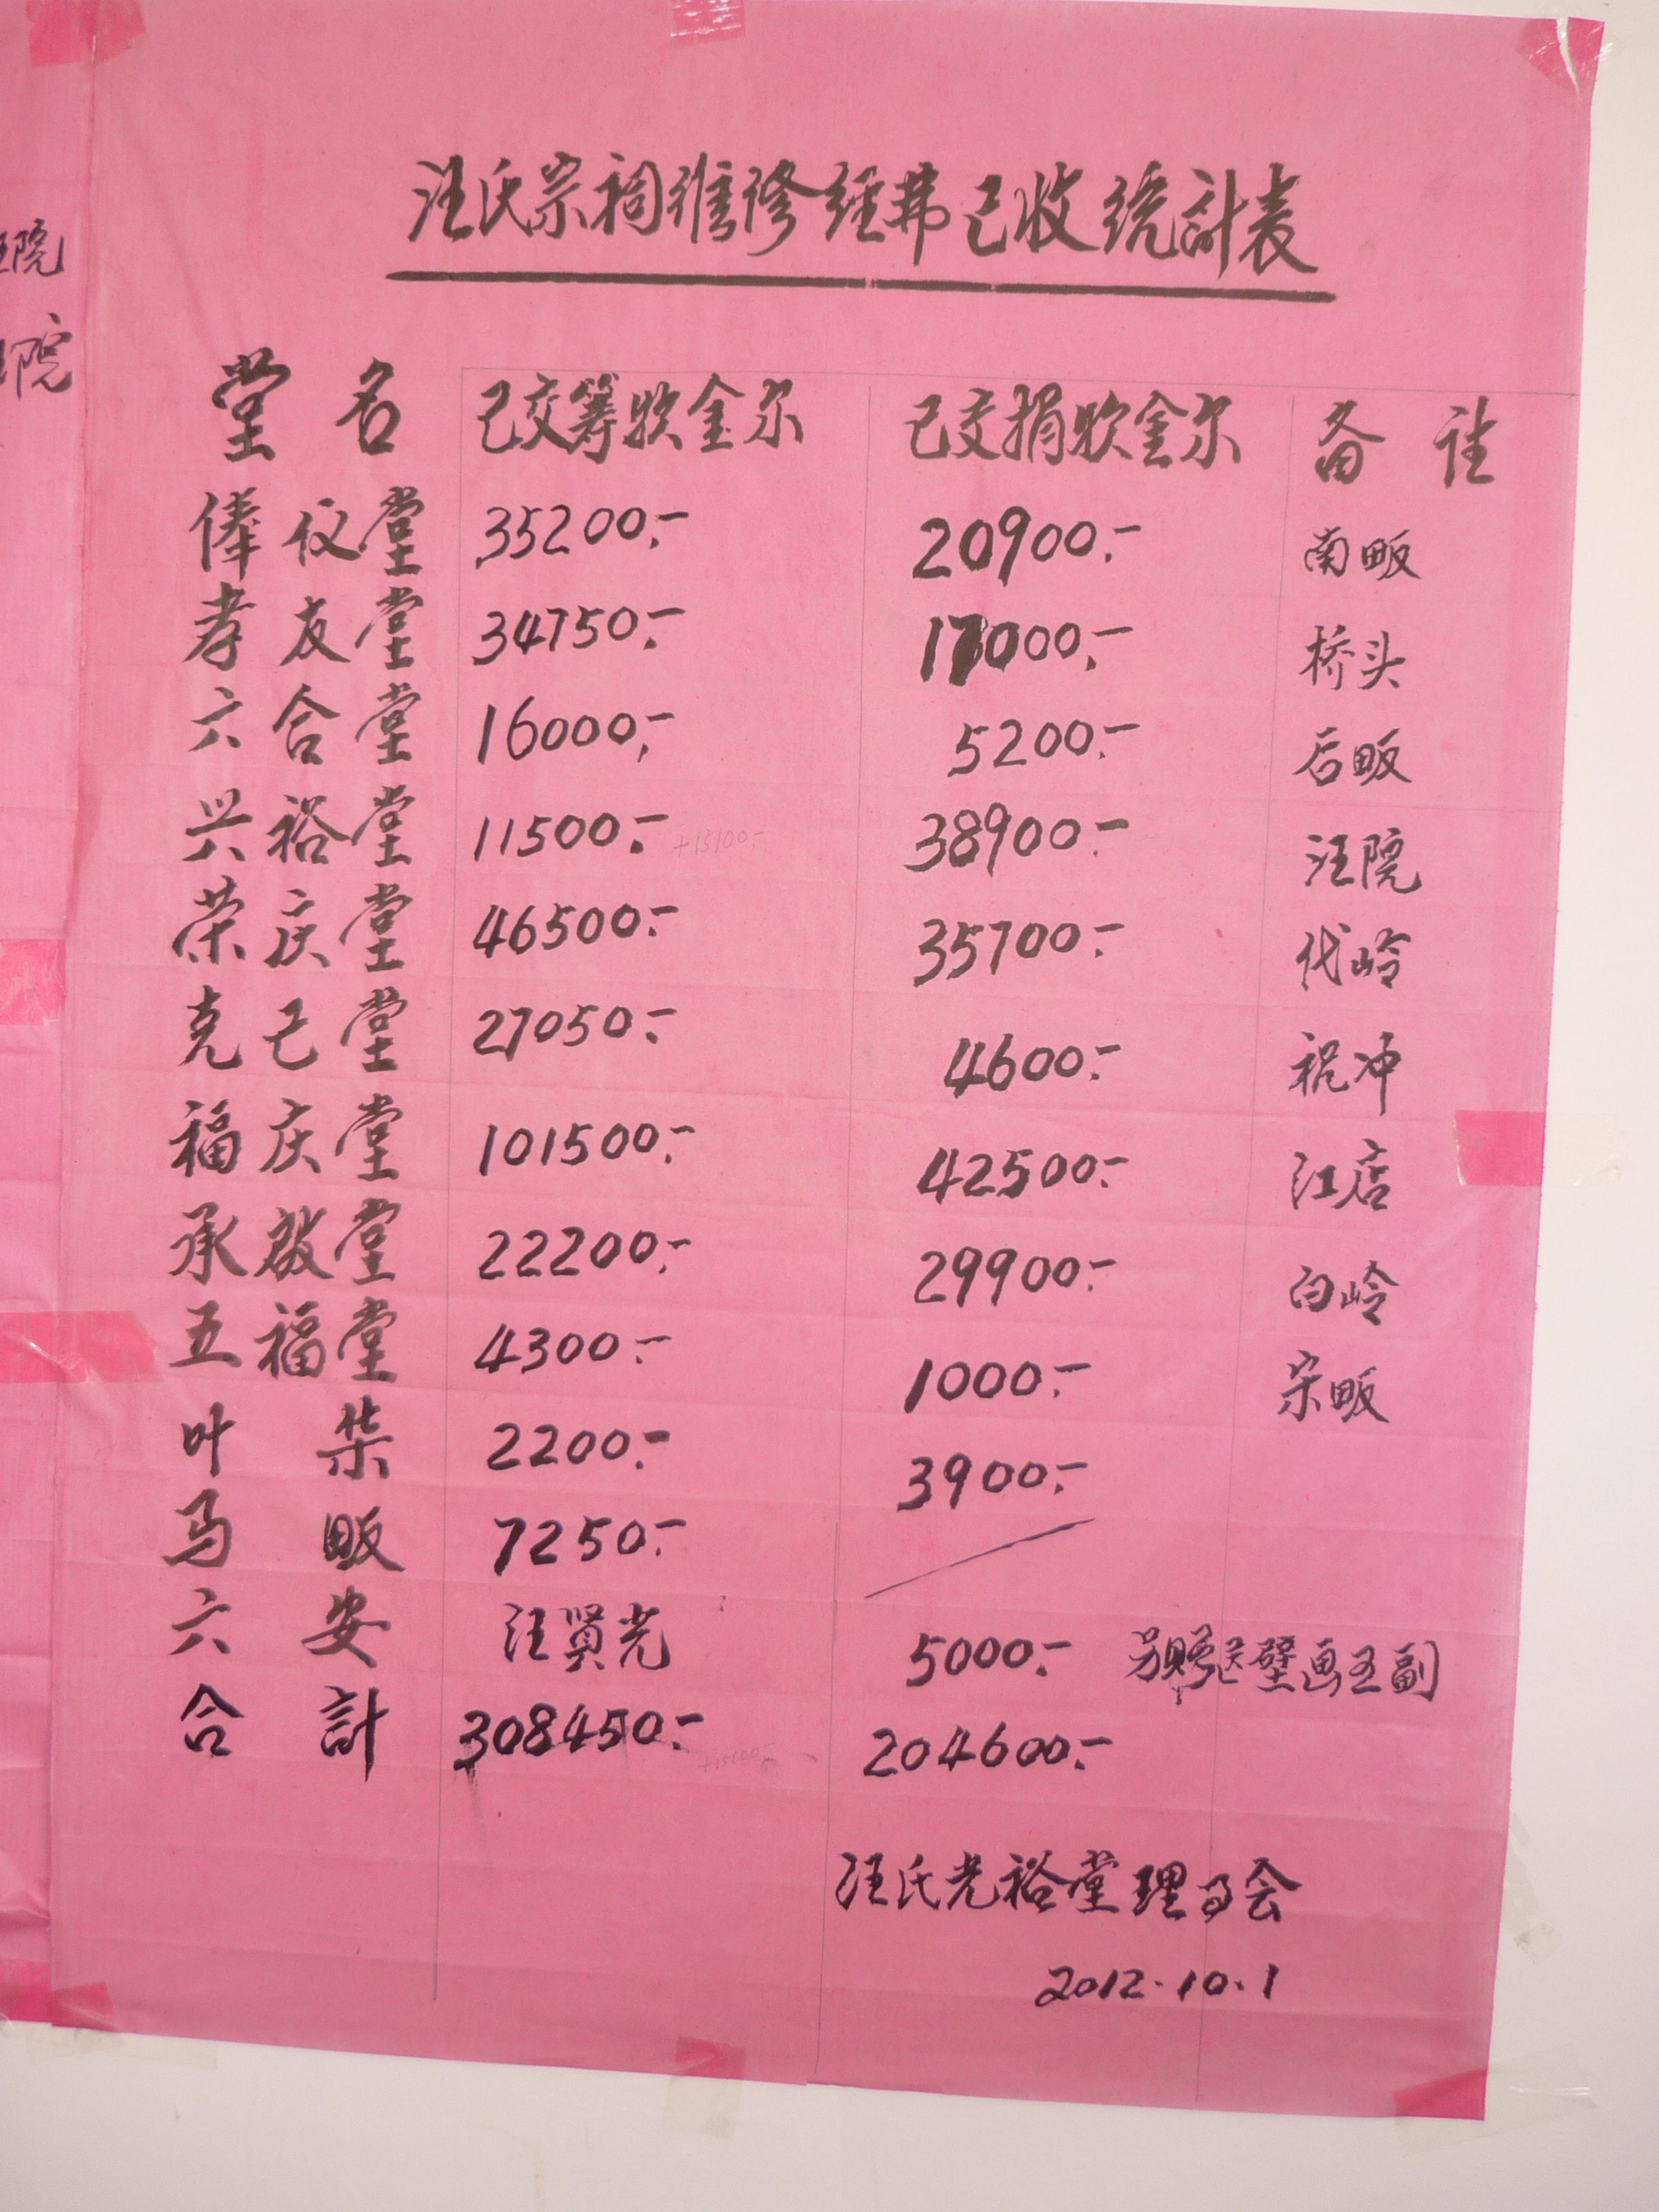 汪氏宗祠维修经费已收统計表
堂名 已交筹款金尔 已交捐款金尔 备註
俸仪堂 35200.- 20900.- 南畈
孝友堂 34750.- 17000.- 桥头
六合堂 16000.- 5200.- 后畈
兴裕堂 11500.- +15100.- 38900.- 汪院
荣庆堂 46500.- 35700.- 代岭
克己堂 27050.- 4600.- 祝冲
福庆堂 101500.- 42500.- 江店
承啟堂 22200.- 29900.- 白岭
五福堂 4300.- 1000.- 宋畈
叶柒 2200.- 3900.-
马畈 7250.-
六安 汪贤光 5000.- 另赠送壁画五副
合計 308450.- +15100.- 204600.-
汪氏光裕堂理事会
2012.10.1
汪院
院